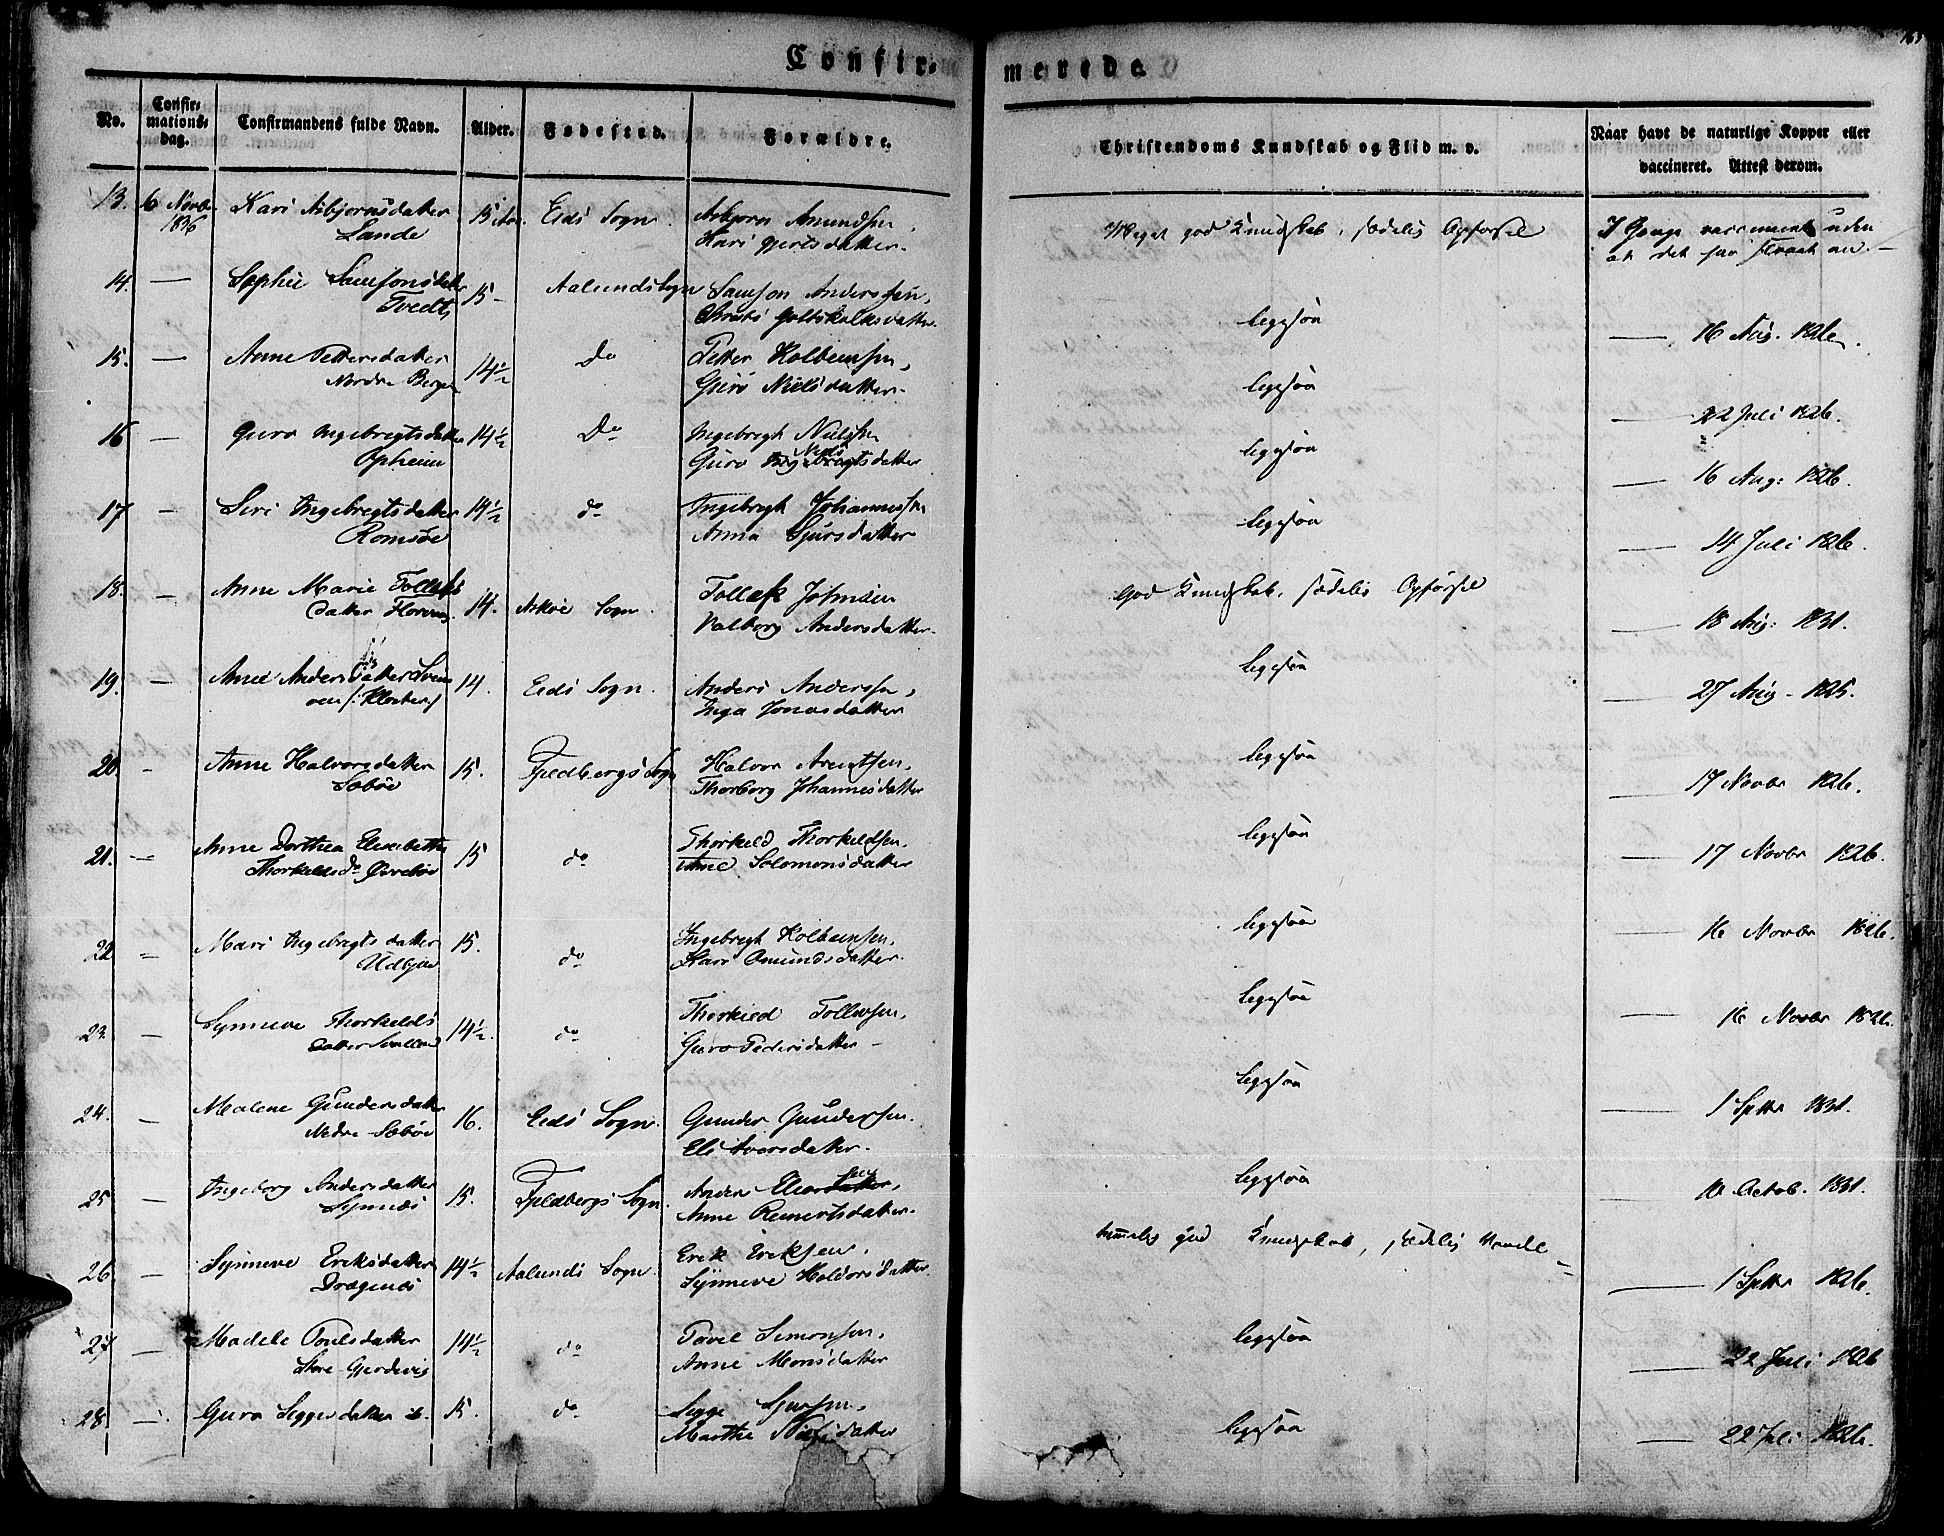 Confir-
merede.
No.
Confir-
mations-
dag.
Confirmandens fulde Navn.
Alder.
Fødested.
Forældre.
Christendoms Kundskab og Flid m. v.
Naar havt de naturlige Kopper eller
vaccineret. Attest derom.
13. 6 Novbr 1836 Kari Asbjørnsdatter 15 Aar Eids Sogn. Asbjørn Amundsen,
Lande Kari Gjertsdatter.
Meget god Kundskab, sædelig Opførsel
3 Gange vaccineret uden
at det har slaaet an.
14. — Sophie Samsonsdatter 15 - Aalunds Sogn Samson Anderssen,
Tvedt Christi Gottskalksdatter.
ligesaa — 16 Aug. 1826.
15. — Anne Pettersdatter 14½ do Petter Kolbeinsen,
Nordre Bergen Guro Nielsdatter.
ligesaa 22 Juli 1826.
16 — Guro Ingebregtsdatter 14½ Do Ingebregt Nielssen
Opheim Guro Niels datter
ligesaa 16 Aug: 1826.
17 — Siri Ingebregtsdatter 14½ do Ingebregt Johannessen
Romsøe Anna Sjursdatter
ligesaa — 14 Juli 1826.
18. — Anne Marie Tollefs 14. Askøe Sogn. Tollef Johnsen
datter Valborg Andersdatter.
God Kundskab, sædelig Opførsel — 18 Aug: 1831.
19. — Anne Andersdatter 14. Eids Sogn. Anders Anderssen,
Inga Jonasdatter
ligesaa — 27 Aug - 1825.
20. - Anne Halvorsdatter 15. Fjeldbergs Sogn Halvor Arentsen,
Sæbøe Thorborg Johannesdatter
ligesaa — 17 Novbr 1826.
21. — Anne Dorthea Elisabeth 15 do Thorkeld Thorkeldsen,
Thorkelds Dr Øvrebøe Anne Solomonsdatter
ligesaa — 17 Novbr 1826.
22 — Mari Ingebregtsdatter 15. do Ingebregt Kolbeinsen,
Udbjoe Kari Omundsdatter.
ligesaa — 16 Novbr 1826.
23. — Synneve Thorkelds 14½. do Thorkild Tollefsen,
datter Guro Pedersdatter -
ligesaa — 16 Novbr 1826.
24. — Malene Gundersdatter 16. Eids Sogn. Gunder Gundersen.
Nedre Sæbøe Eli Iversdatter.
ligesaa — 1 Septbr 1831.
25 — Ingeborg Andersdatter 15. Fjeldbergs Sogn. Anders
Synnæs Anne Reinertsdatter.
ligesaa — 10 Octob. 1831.
26. — Synneve Eriksdatter 14½ Aalunds Sogn. Erik Eriksen,
Dragenæs Synneve Haldorsdatter.
temmelig god Kundskab, sædelig Vandel — 1 Septbr 1826.
27. — Madele Poulsdatter 14½ do Povel Simonsen,
Store Gjerdevig Anne Monsdatter
ligesaa — 22 Juli 1826
28 — Guro Siggesdatter 15. do Sigge Sjursen,
Marthe Nielsdatter
ligesaa — 22 Juli 1826.